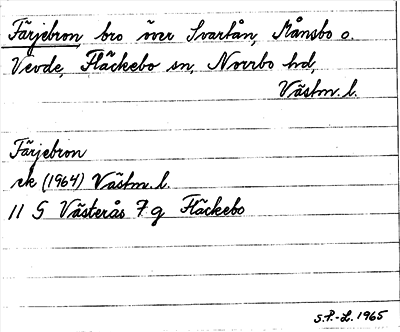 Färjebron, bro över Svartån, Månsbo o.
Vevde, Fläckebo sn, Norrbo hd,
Västm. l.
Färjebron
ek (1964) Västm. l.
11 G Västerås 7 g Fläckebo
S.P.-L. 1965